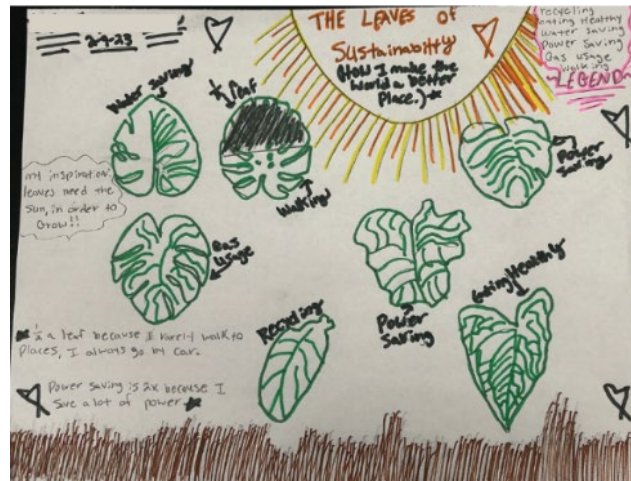 2-9-23
THE LEAVES OF
Sustainability
(How I make the
World a Better
Place.)
recycling
eating Healthy
Water Saving
Power Saving
Gas usage
walking
~LEGEND~
Water Saving
½ leaf
Walking
Power
Saving
my inspiration:
leaves need the
sun, in order to
Grow!!
Gas
Usage
Power
Saving
Eating Healthy
Recycling
½ a leaf because I rarely walk to
places, I always go by car.
Power saving is 2x because I
save a lot of power